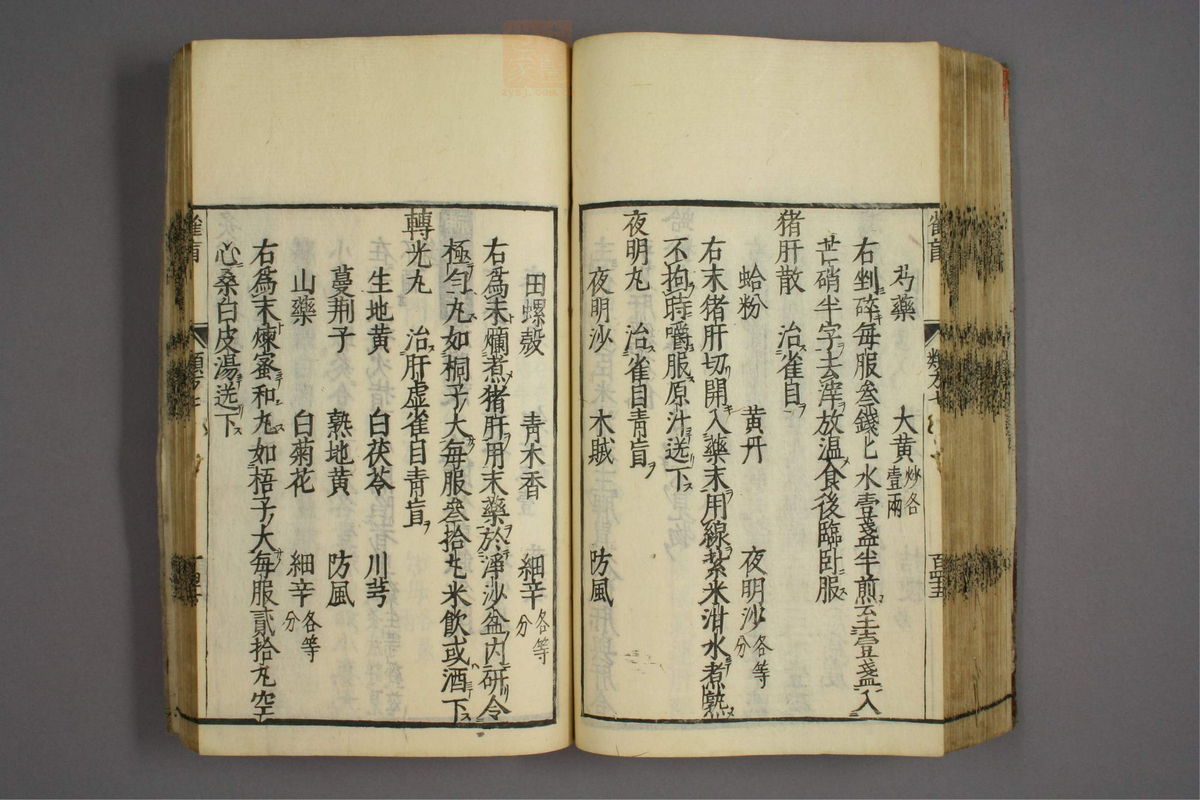 芍藥 大黃炒各壹兩
右剉碎每服叄錢匕水壹盞半煎至壹盞入
芒硝半字去滓放溫食後臨卧服
猪肝散 治雀目ヲ
蛤粉 黄丹 夜明沙各等分
右末猪肝切開入藥末用線紮米泔水煮熟
不拘時嚼服原汁送下
夜明丸 治雀目青盲ヲ
夜明沙 木賊 防風
田螺殼 青木香 細辛各等分
右爲末爛煮猪肝用末藥於淨沙盆内研令
極勻丸如桐子大每服叄拾丸米飲或酒下
轉光丸 治肝虚雀目青盲ヲ
生地黄 白茯苓 川芎
蔓荆子 熟地黄 防風
山藥 白菊花 細辛各等分
右爲末煉蜜和丸如梧子大每服貳拾丸空
心桑白皮湯送下